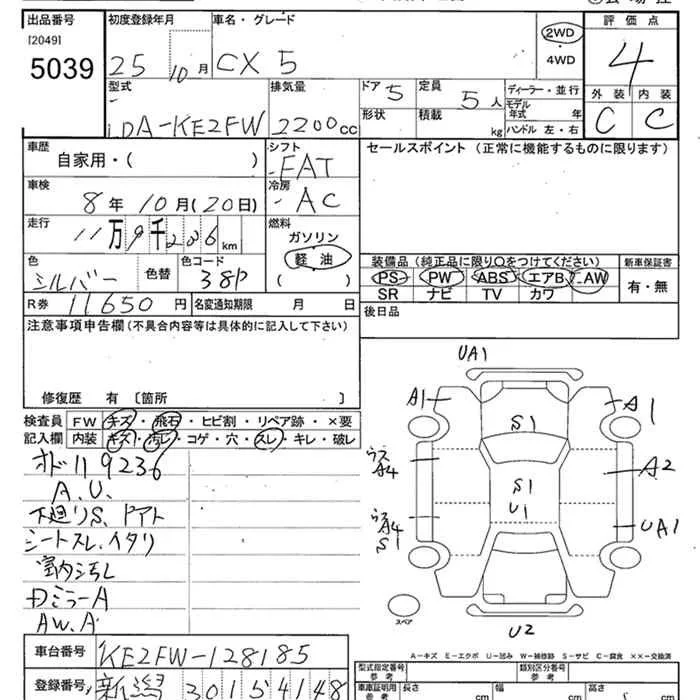 出品番号 初度登録年月 車名・グレード 評価点
[2049]
5039 25 10月 CX 5 2WD 4
・4WD
型式 排気量 ドア 5 定員 5人 ディーラー・並行 外装 内装
LDA-KE2FW 2200cc 形状 積載 kg モデル年式 年 C C
ハンドル 左・右
車歴 シフト セールスポイント (正常に機能するものに限ります)
自家用・( ) FAT
車検 冷房
8年 10月(20日) AC
走行 燃料
11万9千236km ガソリン
軽油
色 カラーコード ( ) 装備品 (純正品に限り○をつけてください) 新車保証書
シルバー 色替 38P PS PW ABS エアB AW 有・無
SR ナビ TV カワ
R券 11650円 名変通知期限 月 日 後日品
注意事項申告欄(不具合内容等は具体的に記入して下さい)
修復歴 有 〔箇所 〕
検査員 FW キズ・飛石・ヒビ割・リペア跡・×要
記入欄 内装 キズ・汚レ・コゲ・穴・スレ・キレ・破レ
オド119236
A.U.
下廻りS、ドアト
シートスレ、イタリ
室内汚レ
Dミラー A
AW.A
UA1
A1 S1 A1
A4 S1 A2
A4 U1 UA1
S1
スペア U2
A-キズ E-エクボ U-凹み W-補修跡 S-サビ C-腐食 ××-交換済
車台番号 KE2FW-128185 型式指定番号 参考 類別区分番号 参考
登録番号 新潟 301 5 4148 車庫証明用 参考 長さ cm 幅 cm 高さ cm